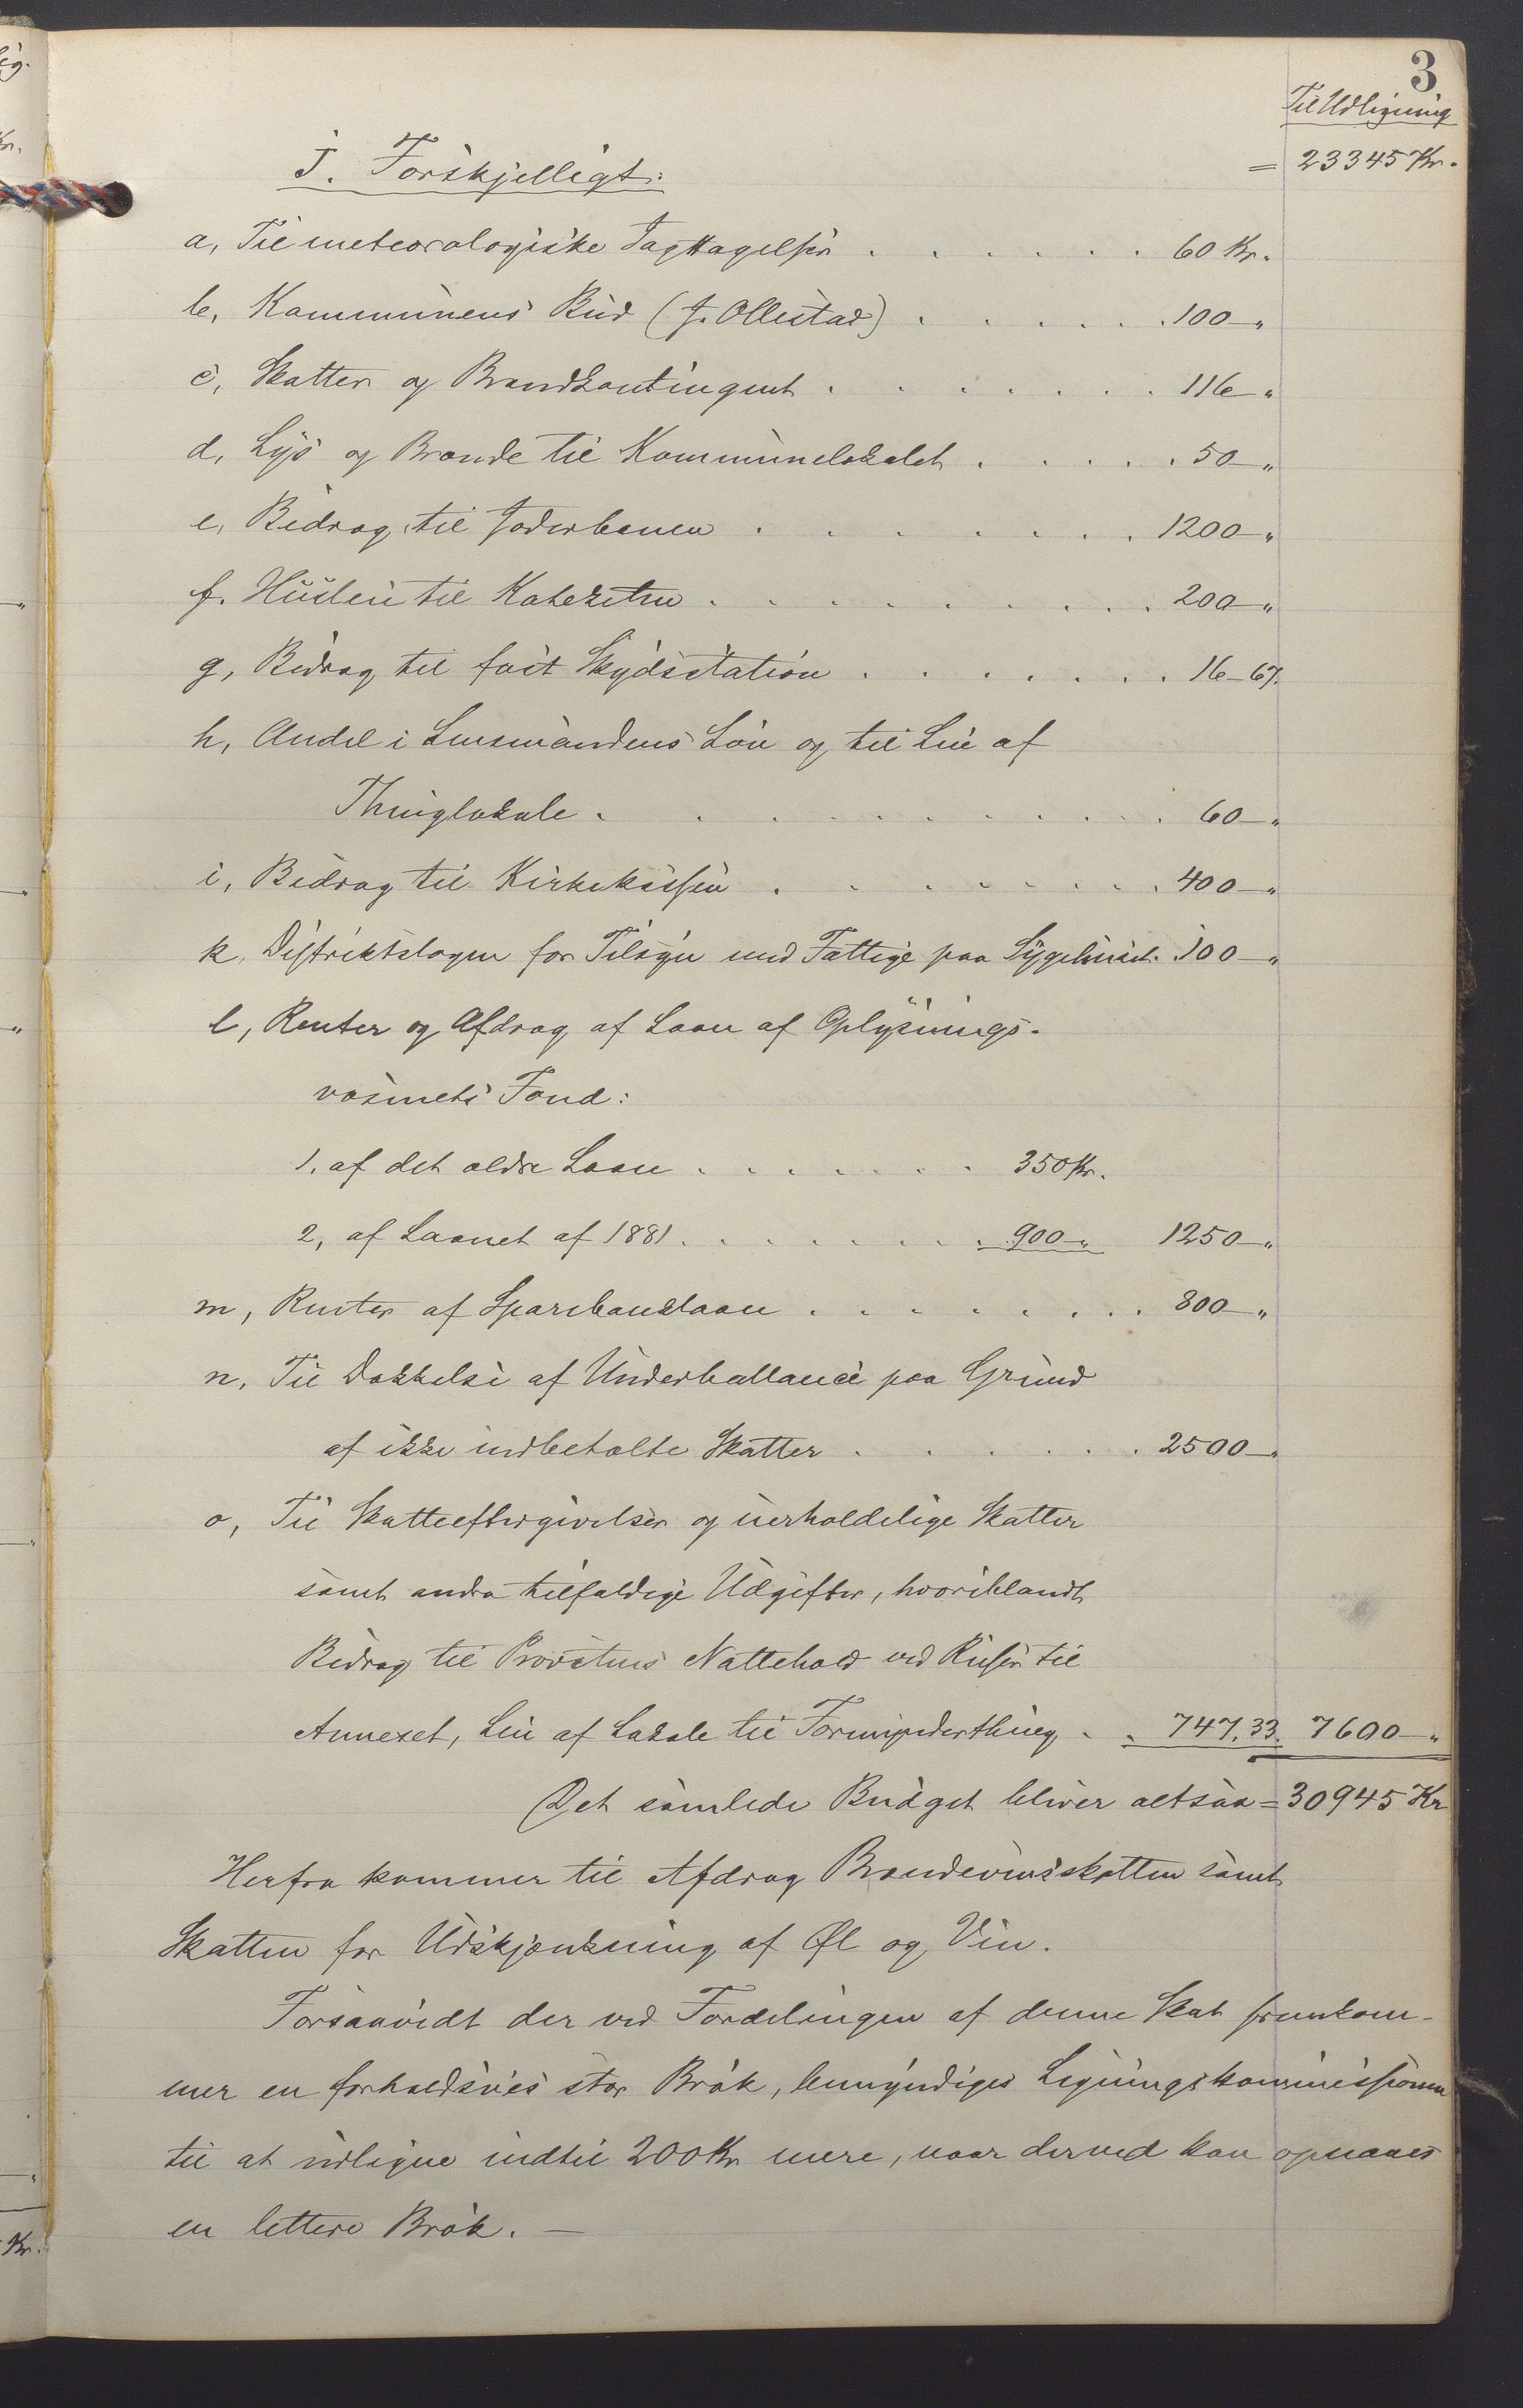 3
Til Udligning
= 23345 Kr.
J. Forskjelligt:
a, Til meteorologiske Iagttagelser . . . . . . 60 Kr.
b, Kommunens Bud (J. Ollestad) . . . . . . 100 – "
c, Skatter og Brandkontingent . . . . . . . 116 – "
d, Lys og Brænde til Kommunelokalet . . . . . 50 – "
e, Bidrag til Jæderbanen . . . . . . . 1200 – "
f. Husleie til Kateketen . . . . . . . . . 200 – "
g, Bidrag til fast Skydsstation . . . . . . . 16 – 67.
h, Andel i Lensmandens Løn og til Leie af
Thinglokale . . . . . . . . . . . . 60 – "
i, Bidrag til Kirkekassen . . . . . . . . . 400 – "
k, Distriktslægen for Tilsyn med Fattige paa Sygehuset. 100 – "
l, Renter og Afdrag af Laan af Oplysnings-
væsenets Fond:
1. af det ældre Laan . . . . . . . 350 Kr.
2, af Laanet af 1881 . . . . . . . . 900 – " 1250 – "
m, Renter af Sparebanklaan . . . . . . . . . 800 – "
n, Til Dækkelse af Underballance paa Grund
af ikke indbetalte Skatter . . . . . . . 2500 – "
o, Til Skatteeftergivelser og uerholdelige Skatter
samt andre tilfældige Udgifter, hvoriblandt
Bidrag til Provstens Nattehold ved Reiser til
Annexet, Leie af Lokale til Formynderthing . . 747. 33. 7600 – "
Det samlede Budget bliver altsaa = 30945 Kr
Herfra kommer til Afdrag Brændevinsskatten samt
Skatten for Udskjænkning af Øl og Vin.
Forsaavidt der ved Fordelingen af denne Skat fremkom-
mer en forholdsvis stor Brøk, bemyndiges Ligningskommissionen
til at udligne indtil 200 Kr mere, naar derved kan opnaaes
en lettere Brøk. –